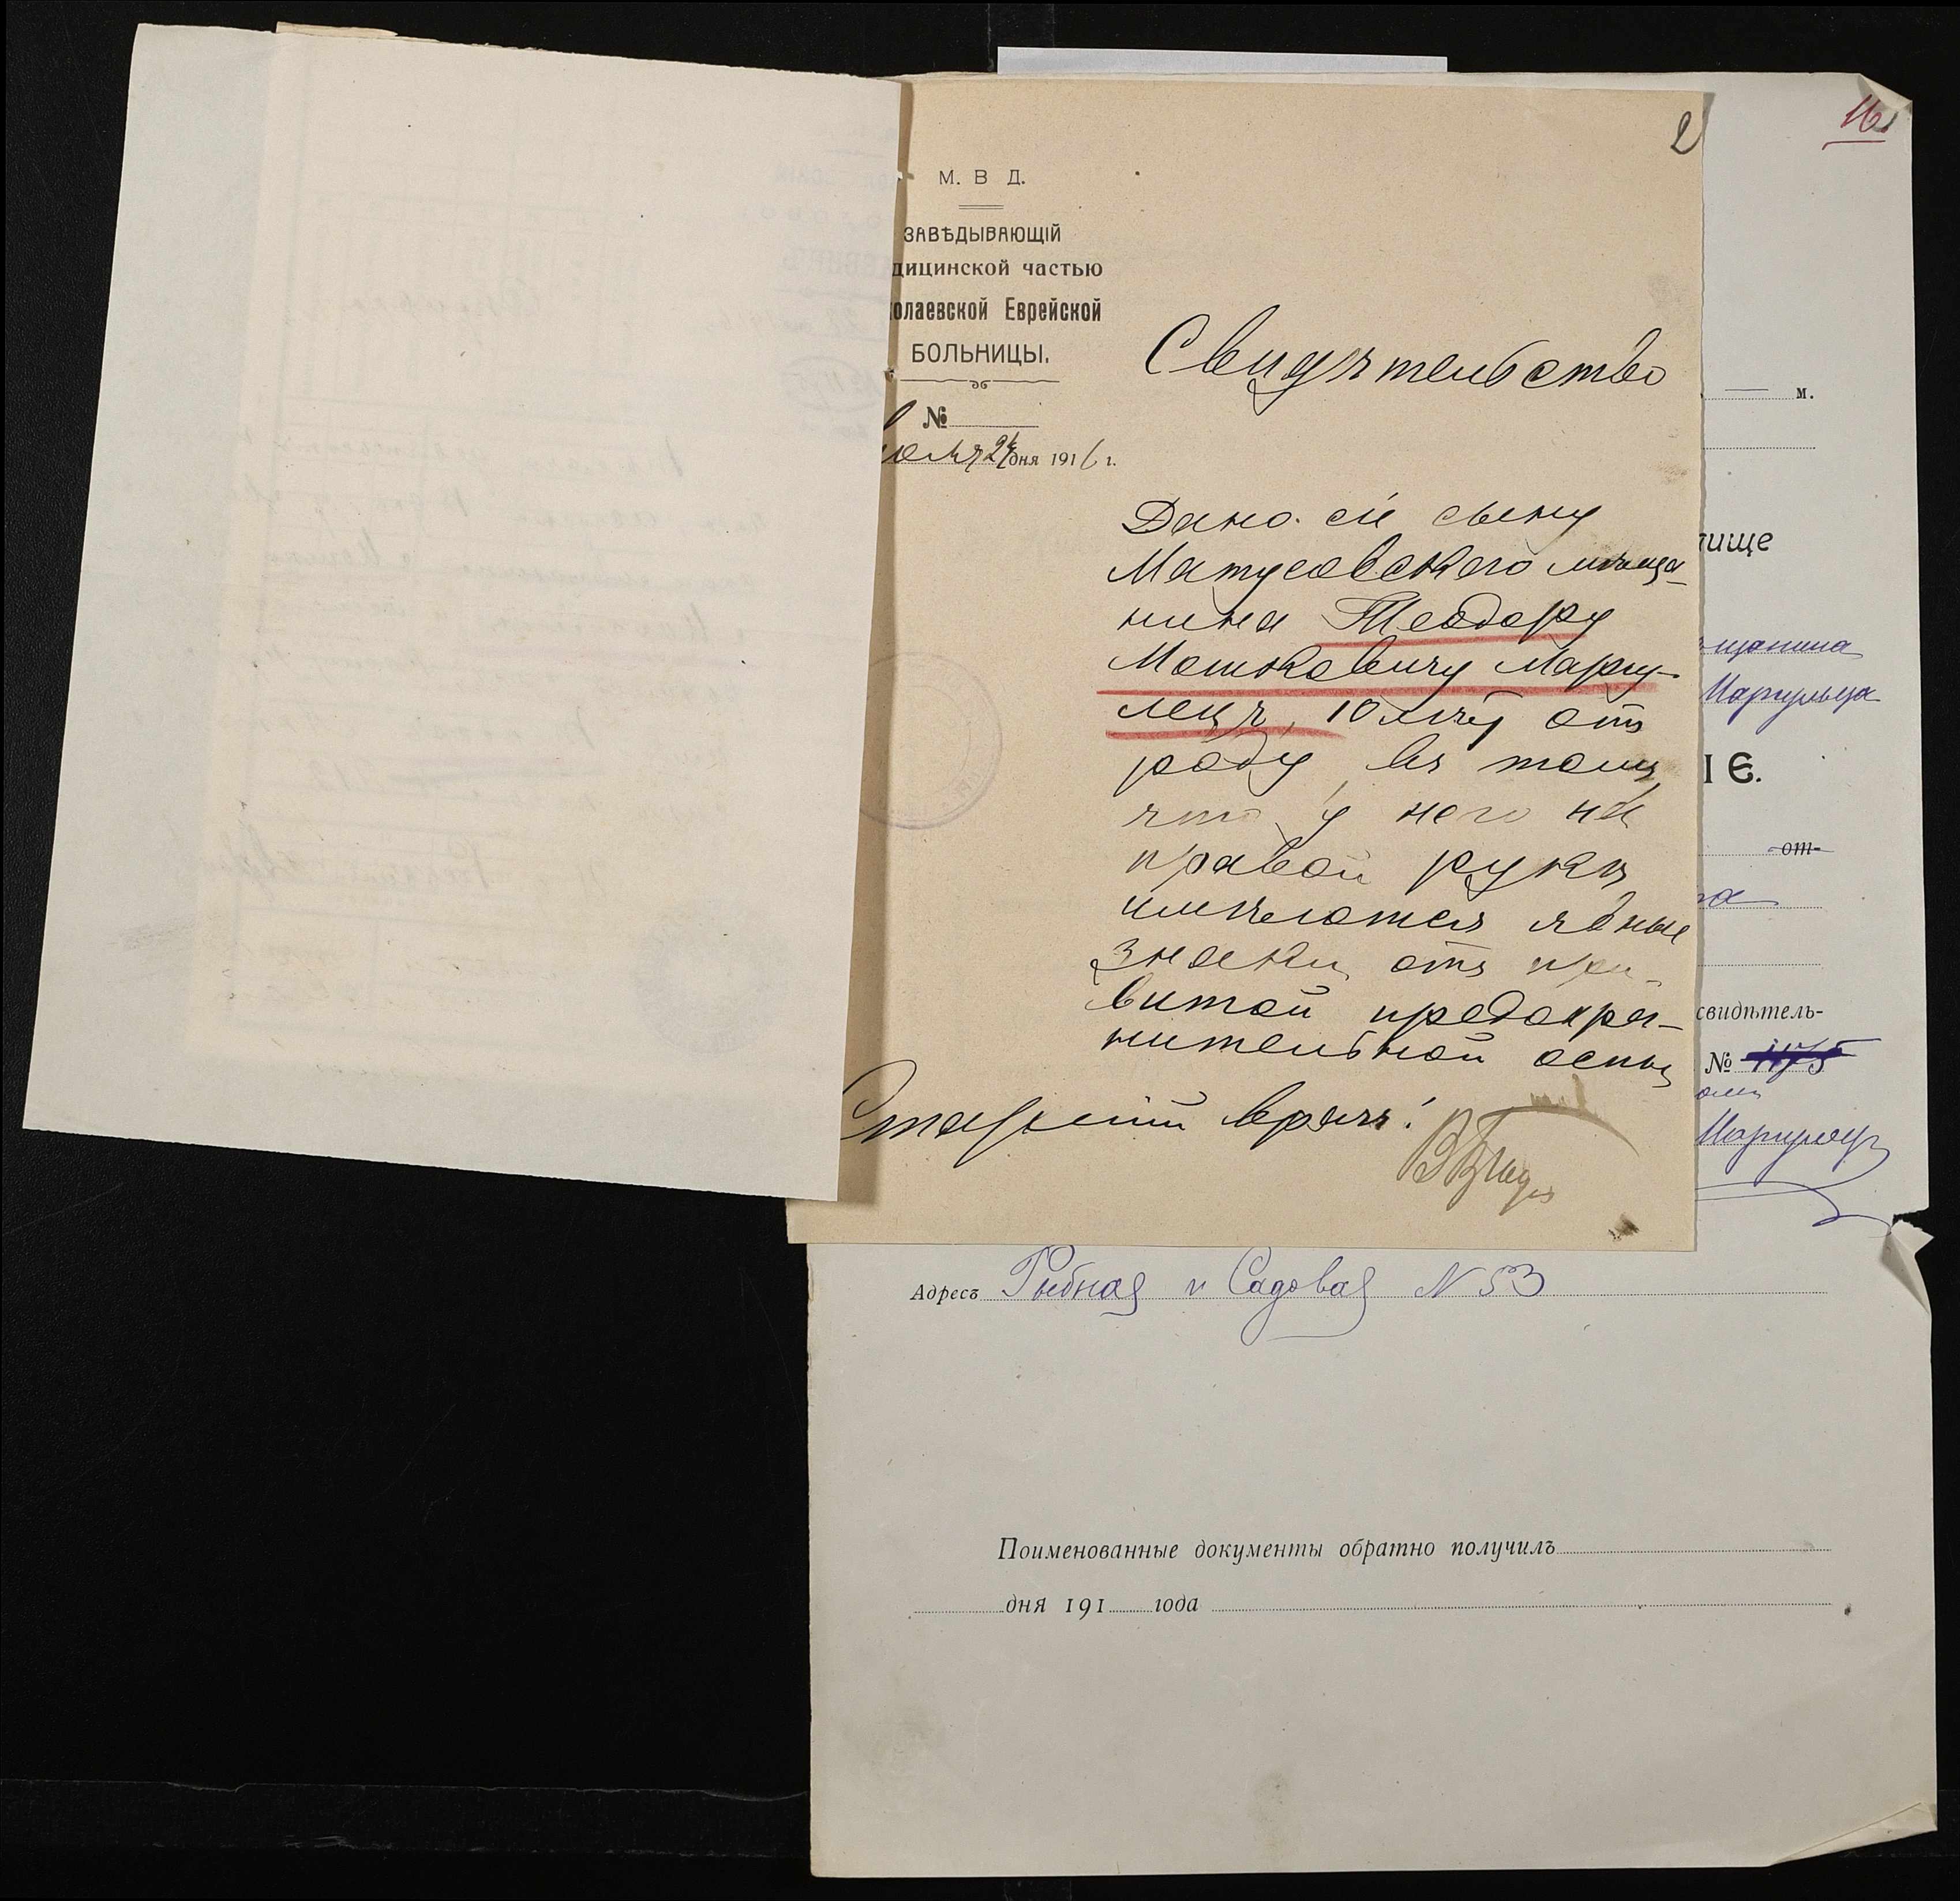 2
16
М. В Д.
ЗАВѢДЫВАЮЩІЙ
дицинской частью
олаевской Еврейской
БОЛЬНИЦЫ.
№
юля 24 дня 1916 г.
Свидѣтельство
Дано сіе сыну
Матусовского мѣща-
нина Теодору
Мошковичу Маргу-
лецъ, 10 лѣтъ отъ
роду въ томъ
что у него на
правой рукѣ
имѣются явные
знаки отъ при-
витой предохра-
нительной оспы
Старшій врачъ:
м.
лище
щанина
Маргульца
ІЕ.
от-
ра
свидѣтель-
№ 1175
Маргулецъ
Адресъ Рыбная и Садовая N 53
Поименованные документы обратно получилъ
дня 191 года